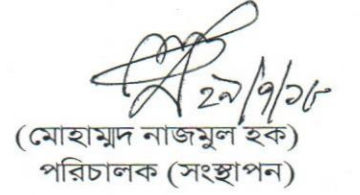 ২৯/৭/১৮
(মোহাম্মদ নাজমুল হক)
পরিচালক (সংস্থাপন)